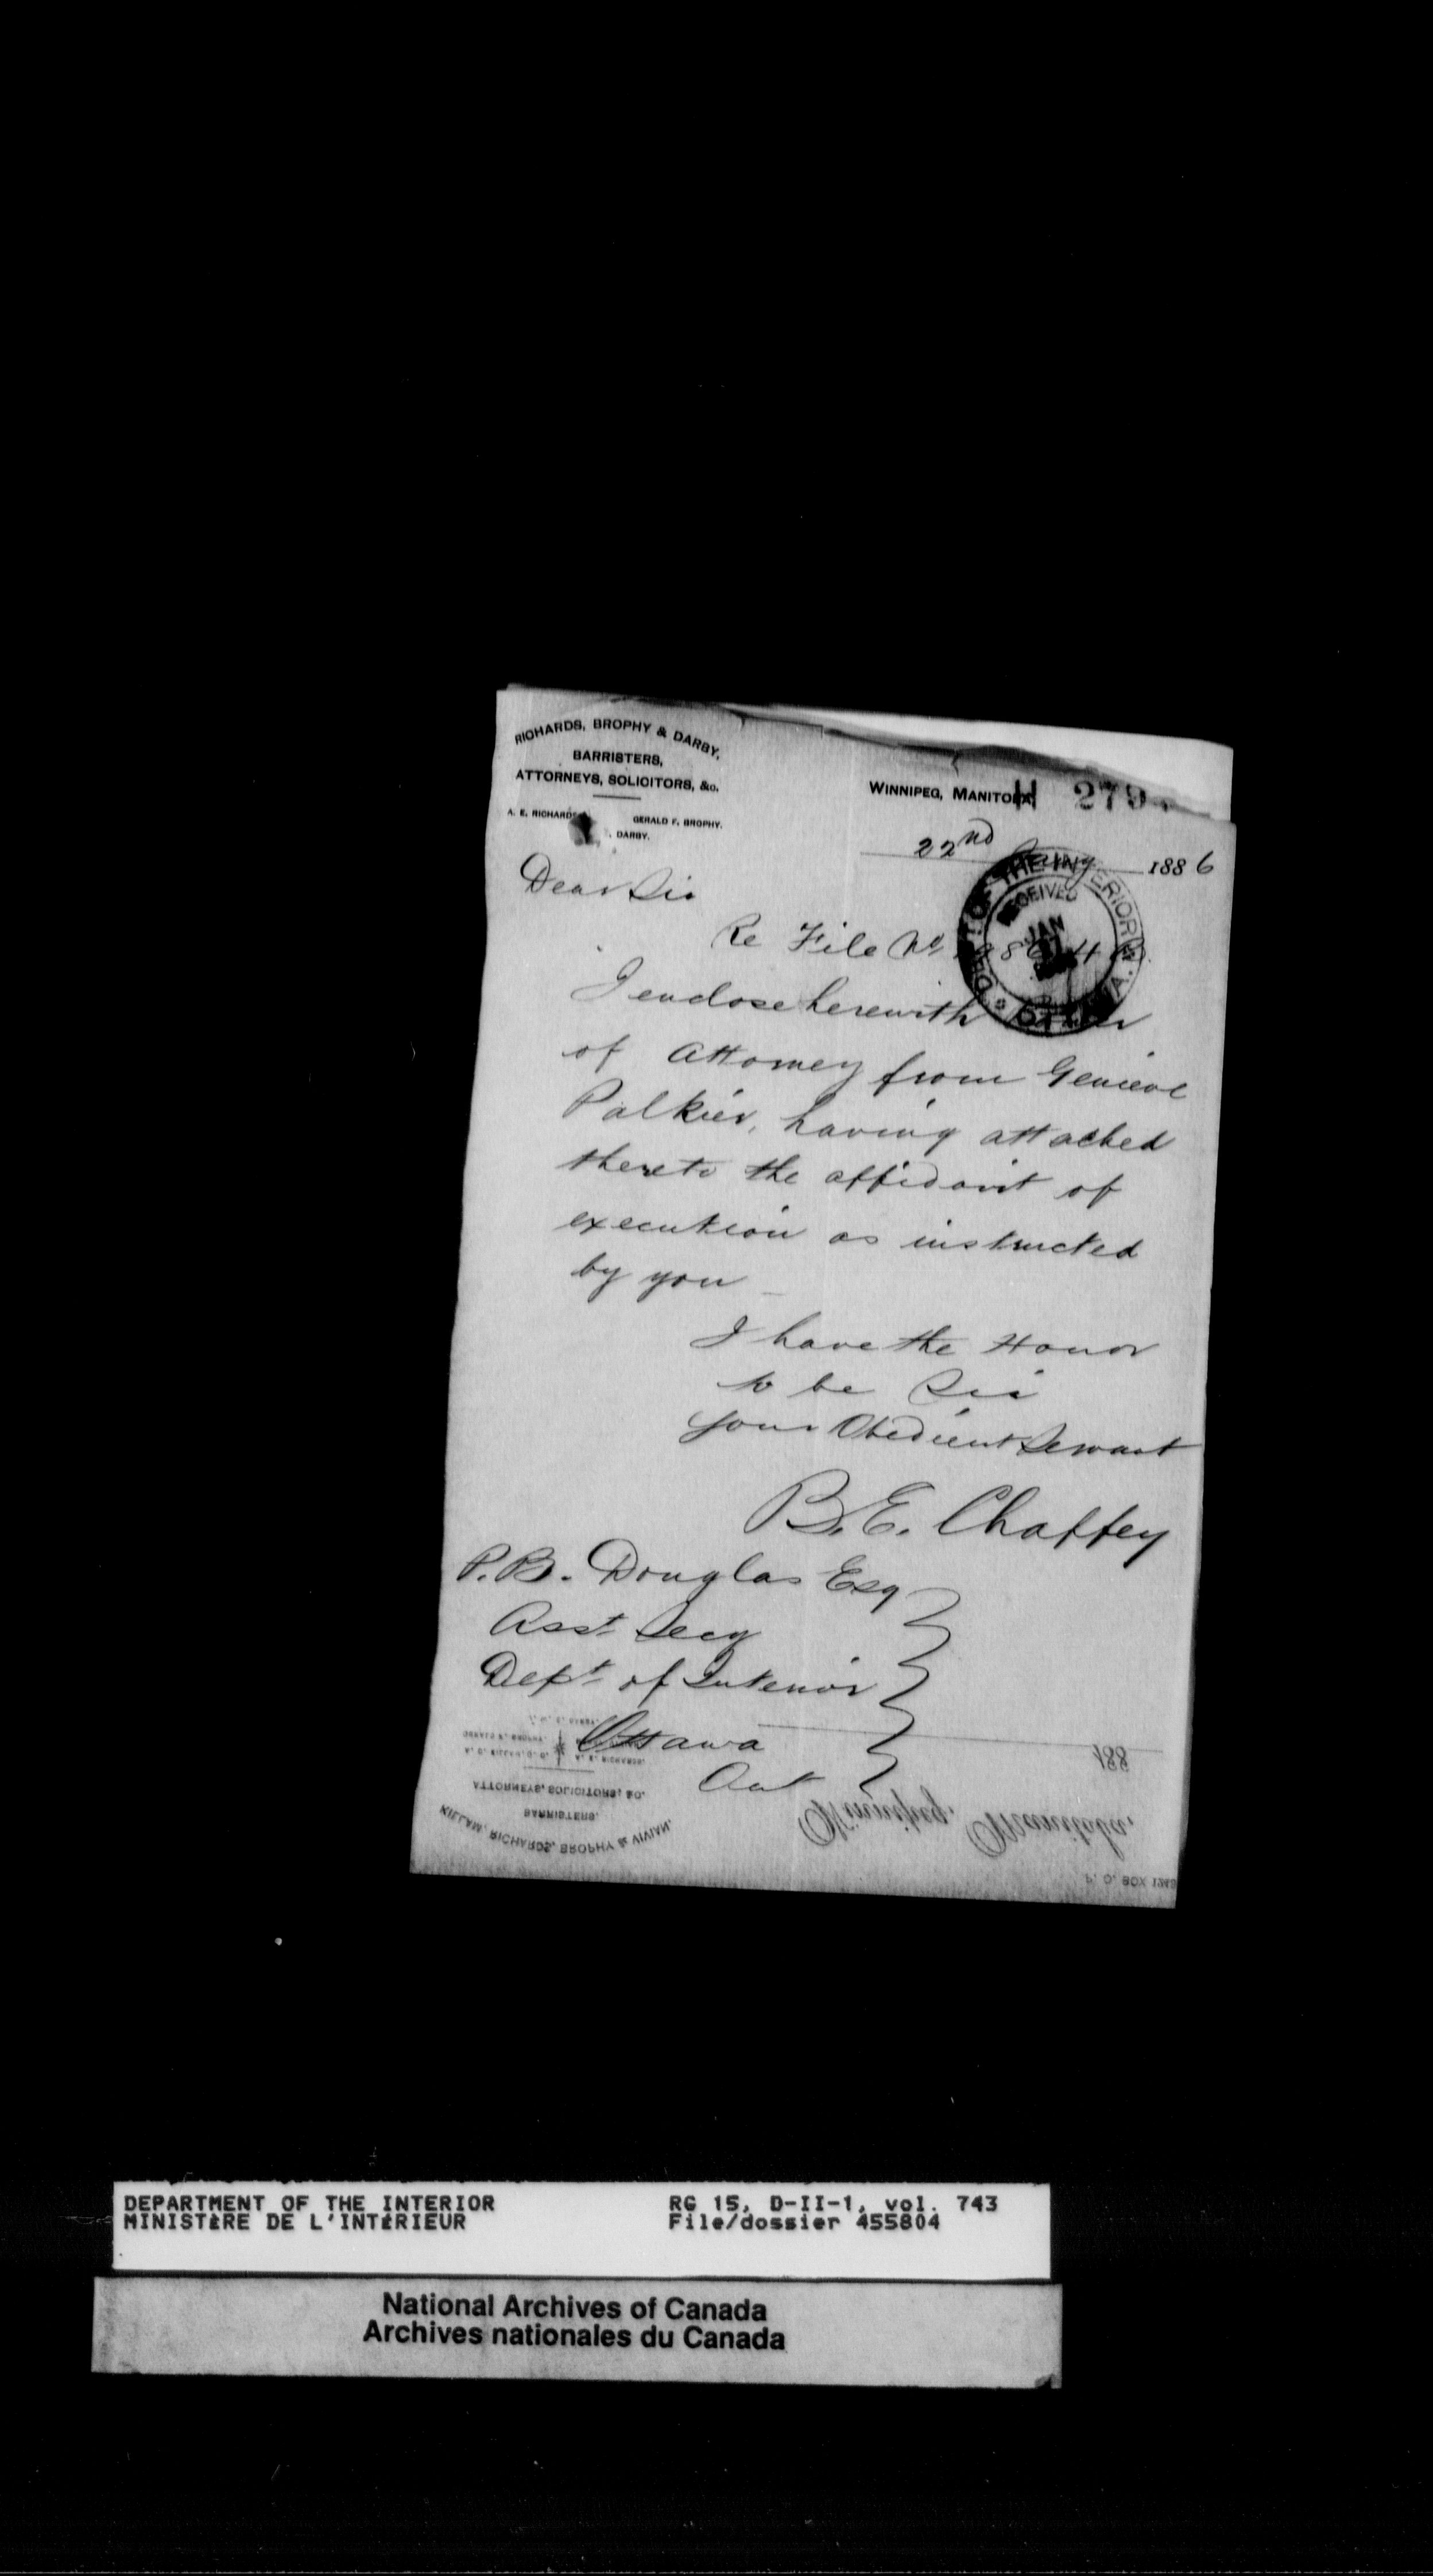 RICHARDS, BROPHY & DARBY,
BARRISTERS,
ATTORNEYS, SOLICITORS, &c.
A. E. RICHARDS
GERALD F. BROPHY.
DARBY.
WINNIPEG, MANITOBA
H 279
22nd Jany 1886
DEPT OF THE INTERIOR OTTAWA.
RECEIVED
JAN
Dear Sir
Re File No
I enclose herewith Power
of Attorney from Genieve
Palkier, having attached
thereto the affidavit of
execution as instructed
by you
I have the Honor
to be Sir
Your Obedient Servant
B. E. Chaffey
P. B. Douglas Esq
Asst Secy
Dept of Interior
Ottawa
Ont
188
Winnipeg, Manitoba,
P. O. BOX 1248
GERALD F. BROPHY.
A. C. KILLAM, Q. C.
A. E. RICHARDS.
ATTORNEYS, SOLICITORS, &C.
BARRISTERS,
KILLAM, RICHARDS, BROPHY & VIVIAN,
DEPARTMENT OF THE INTERIOR
MINISTÈRE DE L'INTÉRIEUR
RG 15, D-II-1, vol. 743
File/dossier 455804
National Archives of Canada
Archives nationales du Canada